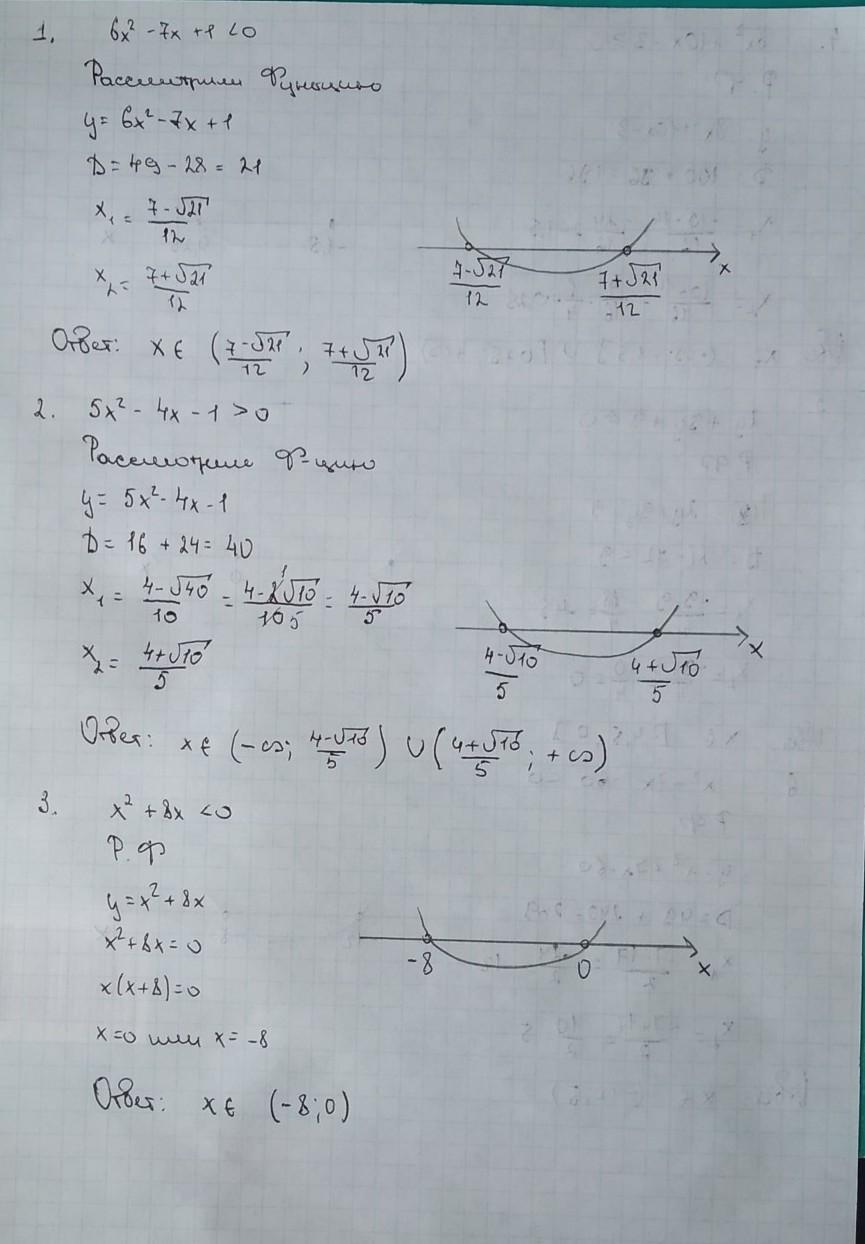 1. 6x² - 7x + 1 < 0
Рассмотрим функцию
y = 6x² - 7x + 1
D = 49 - 28 = 21
x₁ = (7-√21)/12
x₂ = (7+√21)/12
(7-√21)/12 (7+√21)/12 x
Ответ: x ∈ ((7-√21)/12 ; (7+√21)/12)
2. 5x² - 4x - 1 > 0
Рассмотрим ф-цию
y = 5x² - 4x - 1
D = 16 + 24 = 40
x₁ = (4-√40)/10 = (4-2√10)/10 = (4-√10)/5
1
5
x₂ = (4+√10)/5
(4-√10)/5 (4+√10)/5 x
Ответ: x ∈ (-∞; (4-√10)/5) ∪ ((4+√10)/5; +∞)
3. x² + 8x < 0
Р. ф
y = x² + 8x
x² + 8x = 0
x(x+8) = 0
-8 0 x
x = 0 или x = -8
Ответ: x ∈ (-8; 0)